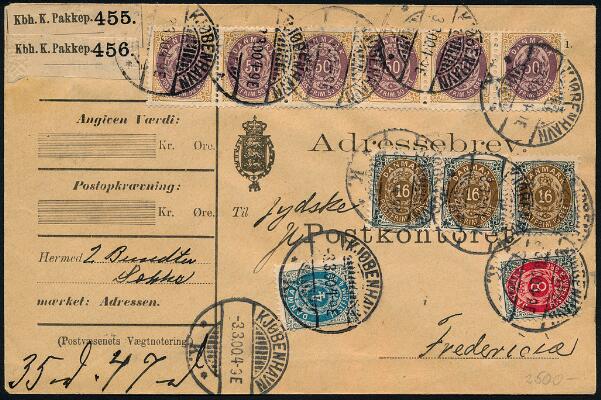 Kbh. K. Pakkep. 455.
Kbh. K. Pakkep. 456.
1.
Angiven Værdi:
Kr. Øre.
Postopkrævning:
Kr. Øre.
Hermed 2 Bundter
Sække
mærket: Adressen.
(Postvæsenets Vægtnotering.)
Adressebrev.
Til jydske
Postkontoret
i
Fredericia
2500-
DANMARK
50
16
16
16
4
8
KJØBENHAVN
3.3.00.4-9E
K